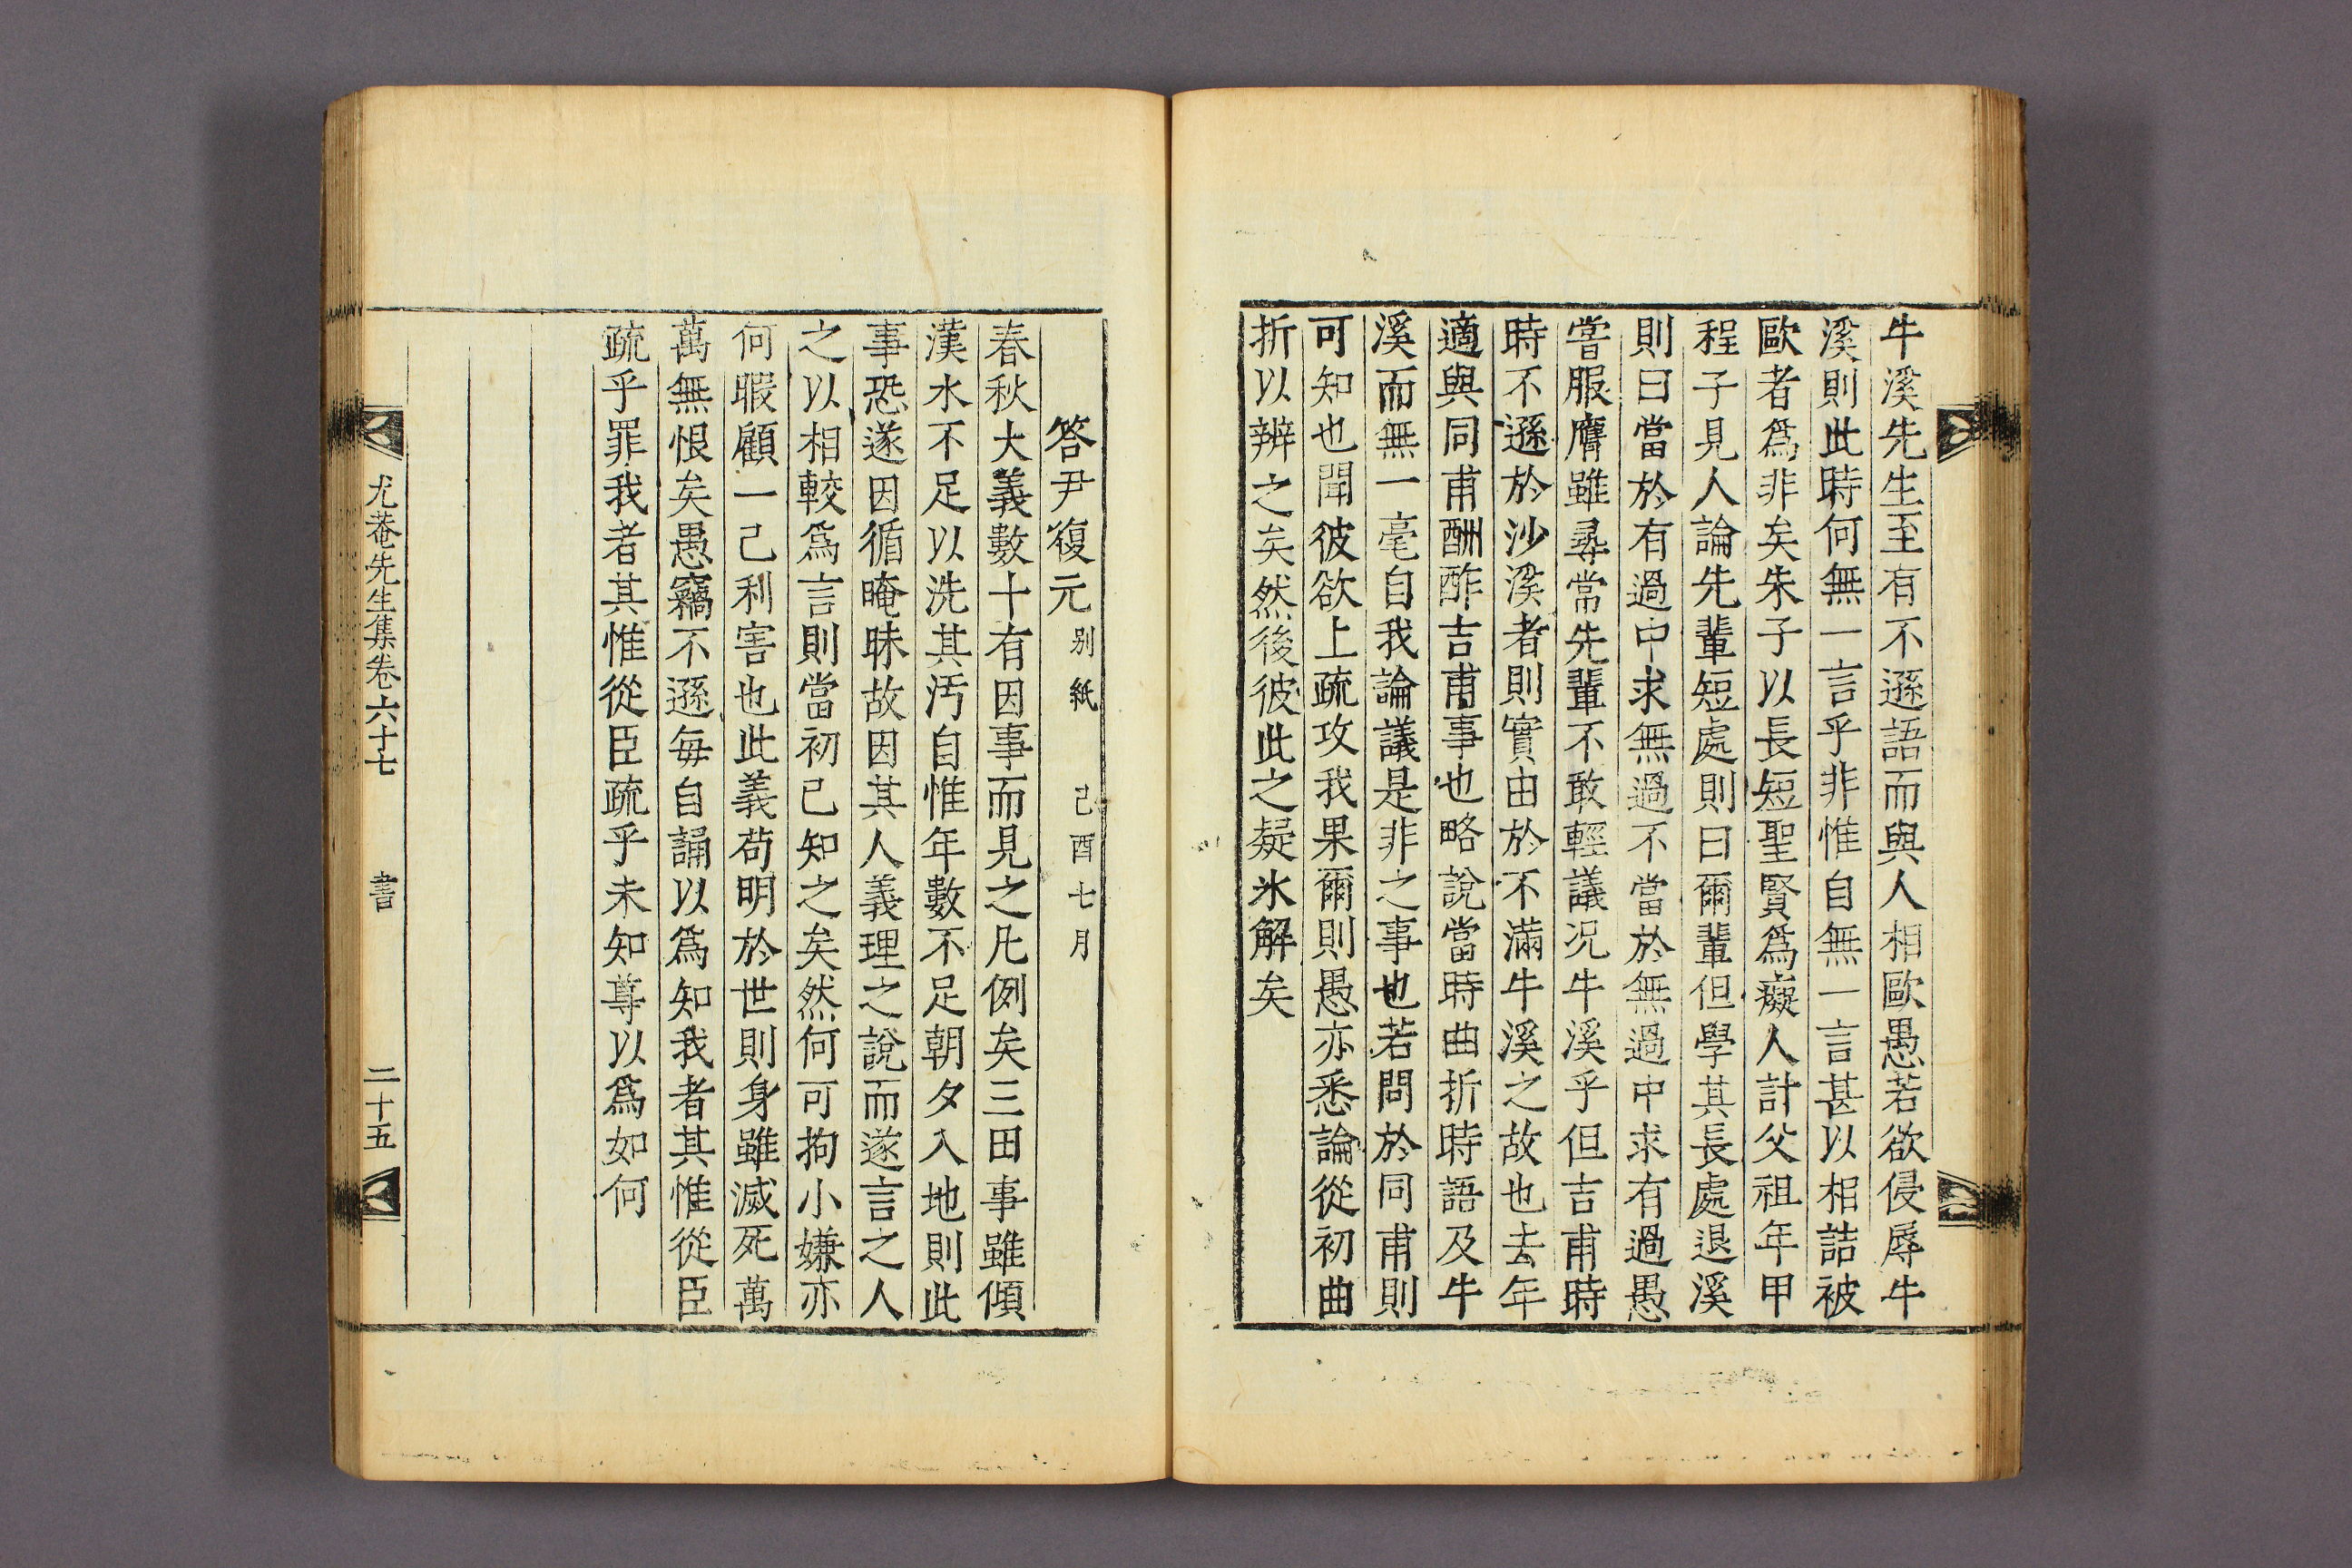 牛溪先生至有不遜語而與人相歐愚若欲侵辱牛
溪則此時何無一言乎非惟自無一言甚以相詰被
歐者爲非矣朱子以長短聖賢爲癡人計父祖年甲
程子見人論先輩短處則曰爾輩但學其長處退溪
則曰當於有過中求無過不當於無過中求有過愚
嘗服膺雖尋常先輩不敢輕議况牛溪乎但吉甫時
時不遜於沙溪者則實由於不滿牛溪之故也去年
適與同甫酬酢吉甫事也略說當時曲折時語及牛
溪而無一毫自我論議是非之事也若問於同甫則
可知也聞彼欲上疏攻我果爾則愚亦悉論從初曲
折以辨之矣然後彼此之疑氷解矣
答尹復元 别紙 己酉七月
春秋大義數十有因事而見之凡例矣三田事雖傾
漢水不足以洗其汚自惟年數不足朝夕入地則此
事恐遂因循晻昧故因其人義理之說而遂言之人
之以相較爲言則當初已知之矣然何可拘小嫌亦
何暇顧一己利害也此義苟明於世則身雖滅死萬
萬無恨矣愚竊不遜每自誦以爲知我者其惟從臣
疏乎罪我者其惟從臣疏乎未知尊以爲如何
尤菴先生集卷六十七 書 二十五